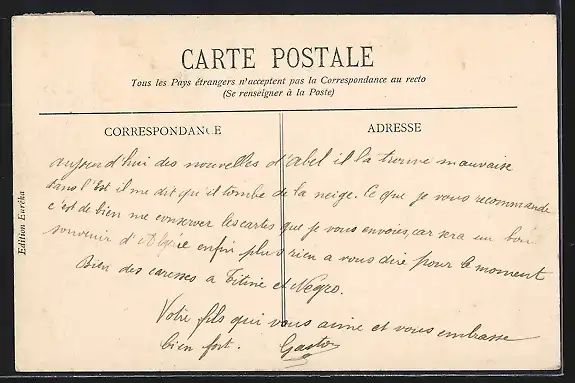 CARTE POSTALE
Tous les Pays étrangers n'acceptent pas la Correspondance au recto
(Se renseigner à la Poste)
CORRESPONDANCE
ADRESSE
aujourd'hui des nouvelles d'Abel il la trouve mauvaise
dans l'Est il me dit qu'il tombe de la neige. Ce que je vous recommande
c'est de bien me conserver les cartes que je vous envoies, car sera un bon
souvenir d'Algérie enfin plus rien a vous dire pour le moment
Bien des caresses a Titine et Negro.
Votre fils qui vous aime et vous embrasse
bien fort. Gaston
Edition Eurêka